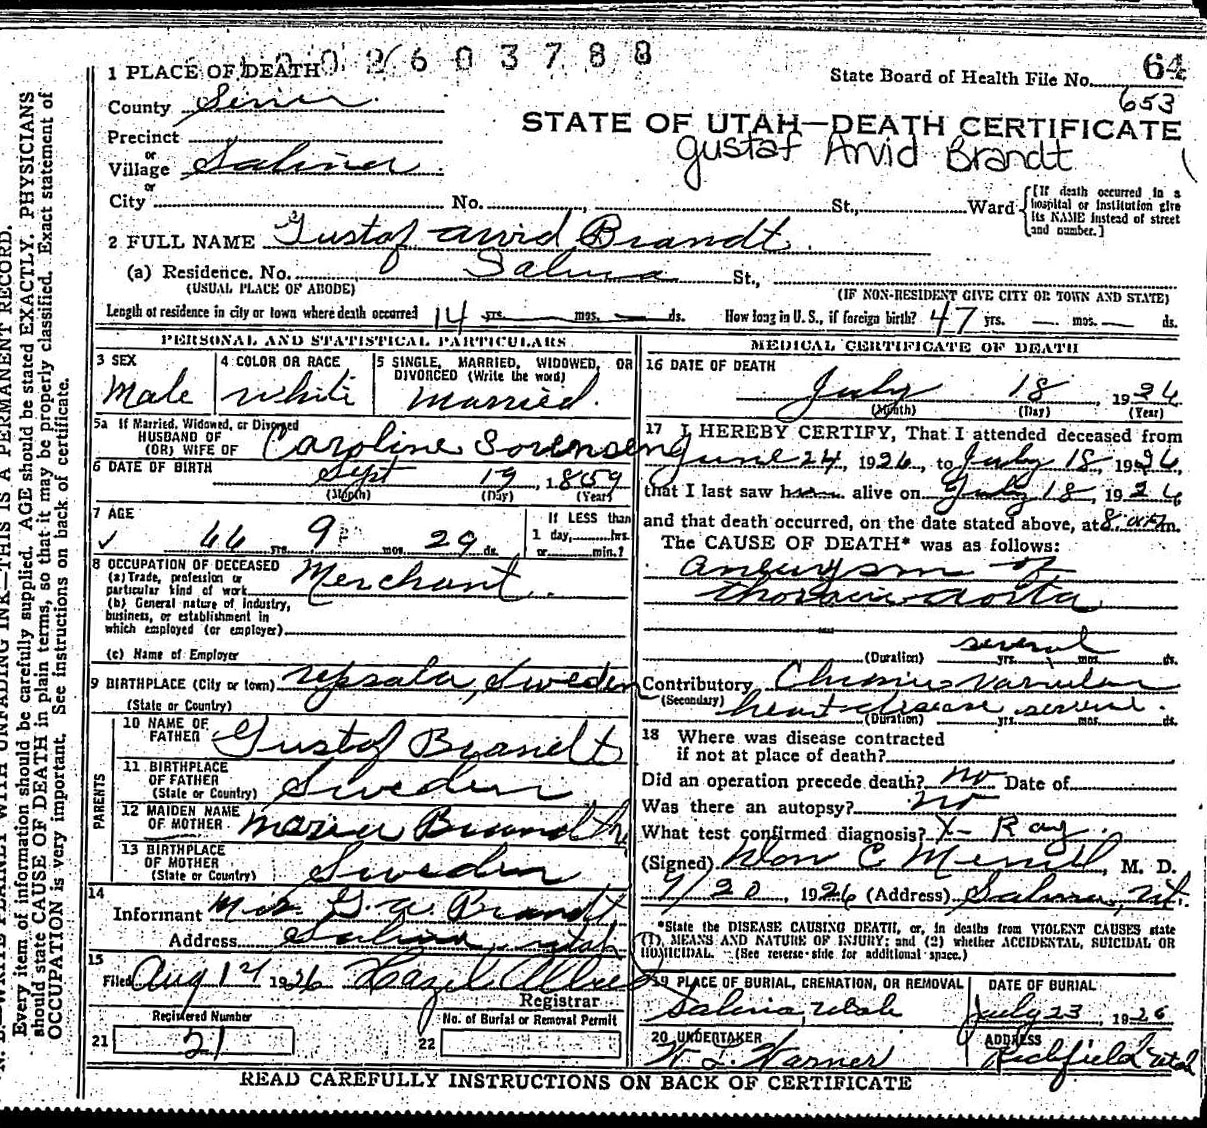 0 0 2 6 0 3 7 8 8
64
State Board of Health File No.
653
1 PLACE OF DEATH
County Sevier
STATE OF UTAH—DEATH CERTIFICATE
Gustaf Arvid Brandt
Precinct
or
Village Salina
or
City No. St., Ward
[If death occurred in a hospital or institution give its NAME instead of street and number.]
2 FULL NAME Gustaf Arvid Brandt
(a) Residence. No. Salina St.,
(USUAL PLACE OF ABODE) (IF NON-RESIDENT GIVE CITY OR TOWN AND STATE)
Length of residence in city or town where death occurred 14 yrs. — mos. — ds. How long in U. S., if foreign birth? 47 yrs. — mos. — ds.
PERSONAL AND STATISTICAL PARTICULARS
3 SEX
Male
4 COLOR OR RACE
White
5 SINGLE, MARRIED, WIDOWED, OR DIVORCED (Write the word)
Married.
5a If Married, Widowed, or Divorced
HUSBAND OF
(OR) WIFE OF Caroline Sorensen
6 DATE OF BIRTH Sept 19, 1859
(Month) (Day) (Year)
7 AGE
✓ 66 yrs. 9 mos. 29 ds.
If LESS than
1 day, hrs.
or min.?
8 OCCUPATION OF DECEASED
(a) Trade, profession or
particular kind of work Merchant.
(b) General nature of industry,
business, or establishment in
which employed (or employer)
(c) Name of Employer
9 BIRTHPLACE (City or town) Upsala, Sweden
(State or Country)
PARENTS
10 NAME OF
FATHER Gustaf Brandt
11 BIRTHPLACE
OF FATHER
(State or Country) Sweden
12 MAIDEN NAME
OF MOTHER Maria Brandt
13 BIRTHPLACE
OF MOTHER
(State or Country) Sweden
14
Informant Mrs. G. A. Brandt
Address Salina, Utah
15
Filed Aug 1st 1926 Hazel Allred
Registrar
Registered Number
21 21
No. of Burial or Removal Permit
22
MEDICAL CERTIFICATE OF DEATH
16 DATE OF DEATH
July 18 1926
(Month) (Day) (Year)
17 I HEREBY CERTIFY, That I attended deceased from
June 24, 1926, to July 18, 1926,
that I last saw him alive on July 18, 1926
and that death occurred, on the date stated above, at 8 a.m.
The CAUSE OF DEATH* was as follows:
Aneurysm of
thoracic aorta
several
(Duration) yrs. mos. ds.
Contributory Chronic valvular
(Secondary) heart disease several.
(Duration) yrs. mos. ds.
18 Where was disease contracted
if not at place of death?
Did an operation precede death? No Date of
Was there an autopsy? No
What test confirmed diagnosis? X-Ray.
(Signed) Don C Merrill, M. D.
7/20, 1926 (Address) Salina, Ut.
*State the DISEASE CAUSING DEATH, or, in deaths from VIOLENT CAUSES state
(1) MEANS AND NATURE OF INJURY; and (2) whether ACCIDENTAL, SUICIDAL OR
HOMICIDAL. (See reverse side for additional space.)
19 PLACE OF BURIAL, CREMATION, OR REMOVAL
Salina, Utah
DATE OF BURIAL
July 23, 1926
20 UNDERTAKER
W. L. Warner
ADDRESS
Richfield Utah
READ CAREFULLY INSTRUCTIONS ON BACK OF CERTIFICATE
N. B.—WRITE PLAINLY WITH UNFADING INK—THIS IS A PERMANENT RECORD.
Every item of information should be carefully supplied. AGE should be stated EXACTLY. PHYSICIANS
should state CAUSE OF DEATH in plain terms, so that it may be properly classified. Exact statement of
OCCUPATION is very important. See instructions on back of certificate.